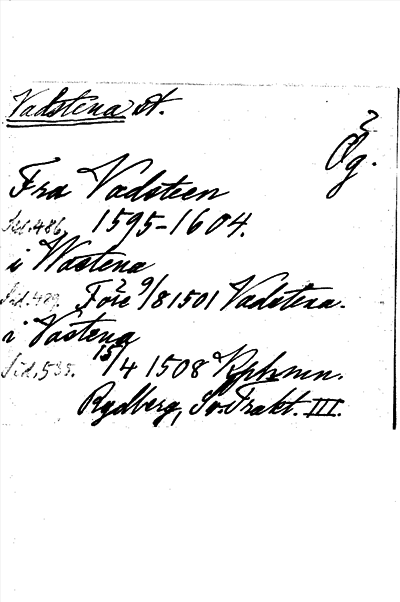 Vadstena st.
Ög.
Fra Vadsteen
Sid. 486. 1595-1604.
i Wastena
Sid. 479. Före 9/8 1501 Vadstena.
i Vastena
Sid. 535. 15/4 1508 Kphmn.
Rydberg, Sv. Trakt. III.